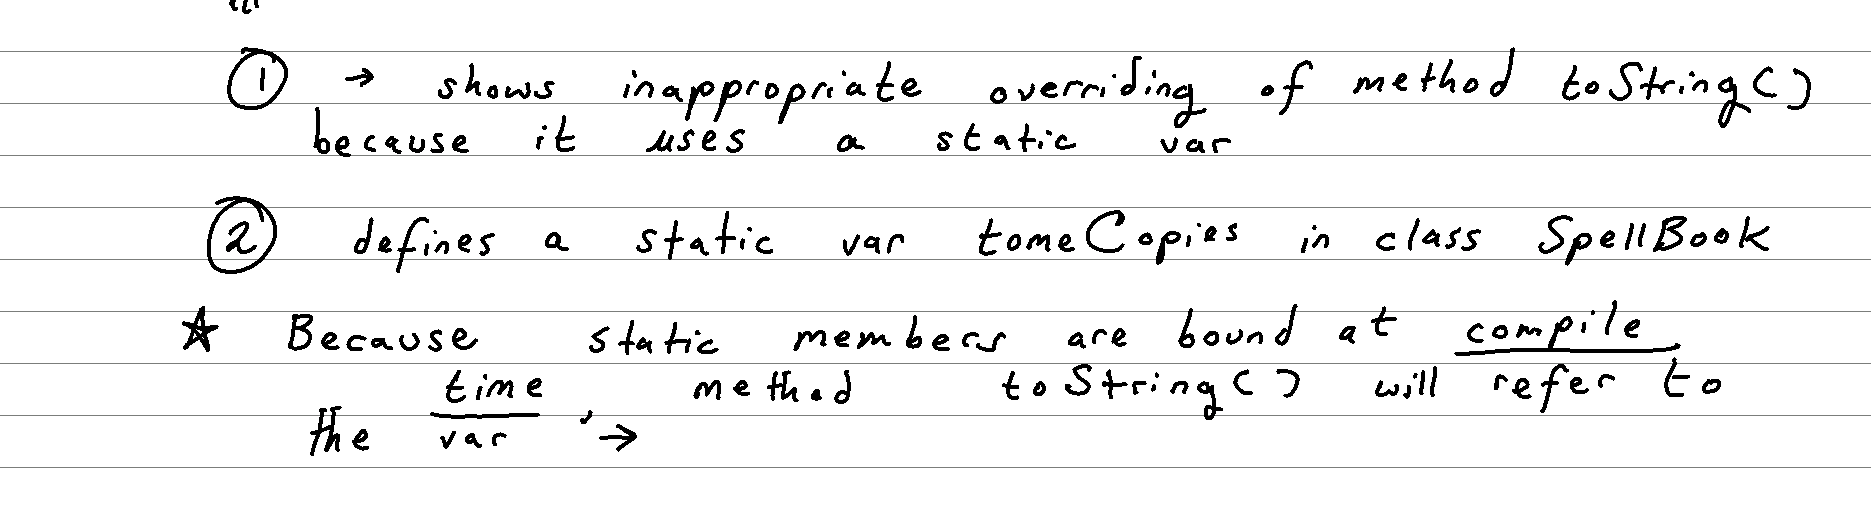 ① → shows inappropriate overriding of method toString()
because it uses a static var
② defines a static var tomeCopies in class SpellBook
☆ Because static members are bound at compile
time, method toString() will refer to
the var →